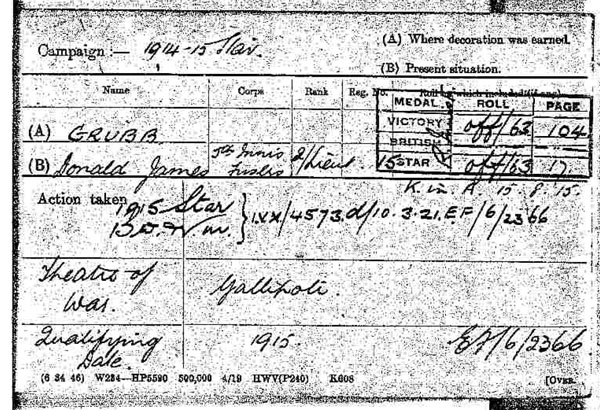 Campaign :— 1914-15 Star. (A) Where decoration was earned.
(B) Present situation.
Name Corps Rank Reg. No. Roll on which included (if any)
MEDAL ROLL PAGE
VICTORY off/63 104
BRITISH
15 STAR off/63 17
(A) GRUBB
(B) Donald James 5th Innis Fuslrs 2/Lieut
K. in A. 15. 8. 15.
Action taken 1915 Star
B.W. & V. m. } I.V.X/4573.d/10.3.21. E.F/6/2366
Theatre of War. Gallipoli.
Qualifying Date. 1915 EF/6/2366
(6 34 46) W234—HP5590 500,000 4/19 HWV(P240) K608 [OVER.